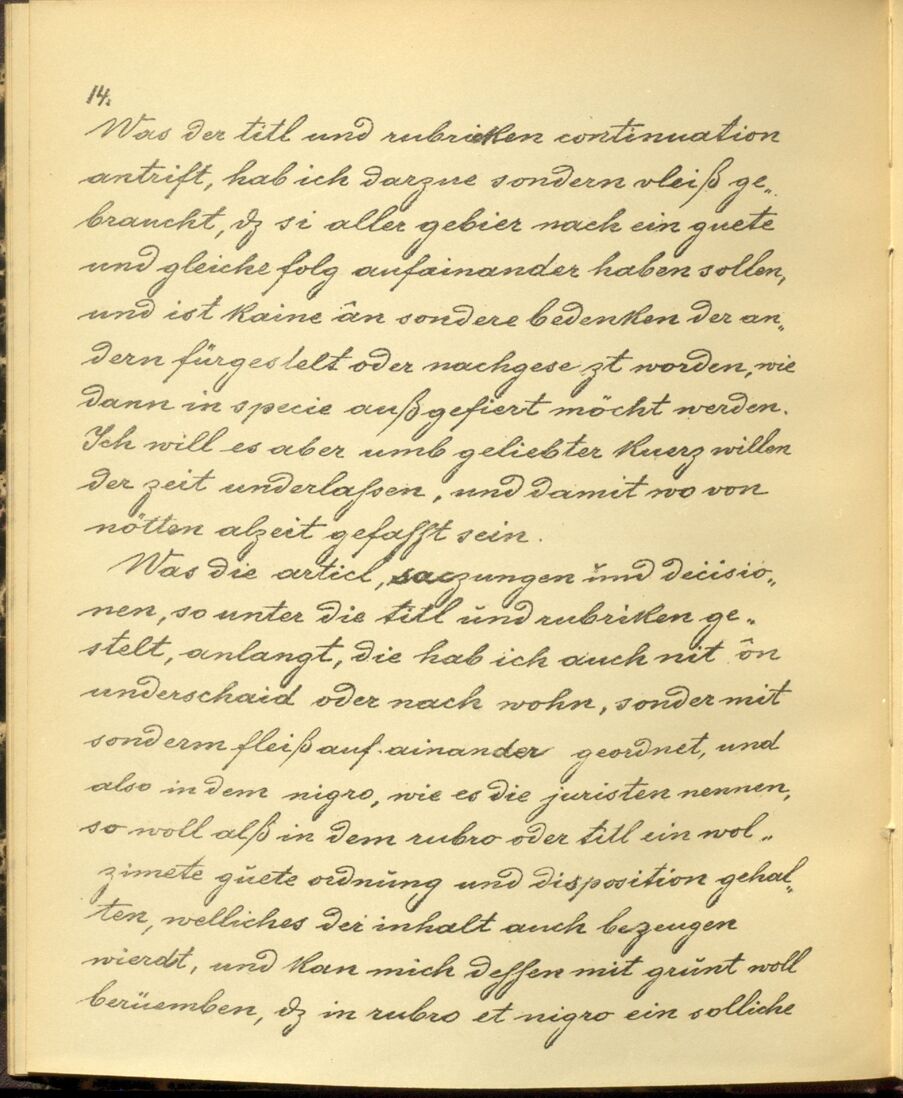 14.
Was der titl und rubricken continuation
antrift, hab ich darzue sondern vleiß ge„
braucht, dz si aller gebier nach ein guete
und gleiche folg aufainander haben sollen,
und ist kaine ân sondere bedenken der an„
dern fürgestelt oder nachgesezt worden, wie
dann in specie außgefiert möcht werden.
Ich will es aber umb geliebter kuerz willen
der zeit underlaßen, und damit wo von
nötten alzeit gefasst sein.
Was die articl, saczungen und decisio„
nen, so unter die titl und rubriken ge„
stelt, anlangt, die hab ich auch nit ôn
underschaid oder nach wohn, sonder mit
sonderm fleiß auf ainander geordnet, und
also in dem nigro, wie es die juristen nennen,
so woll alß in dem rubro oder titl ein wol„
zimete güete ordnüng und disposition gehal„
ten, welliches der inhalt auch bezeugen
wierdt, und kan mich dessen mit grünt woll
berüemben, dz in rubro et nigro ein solliche